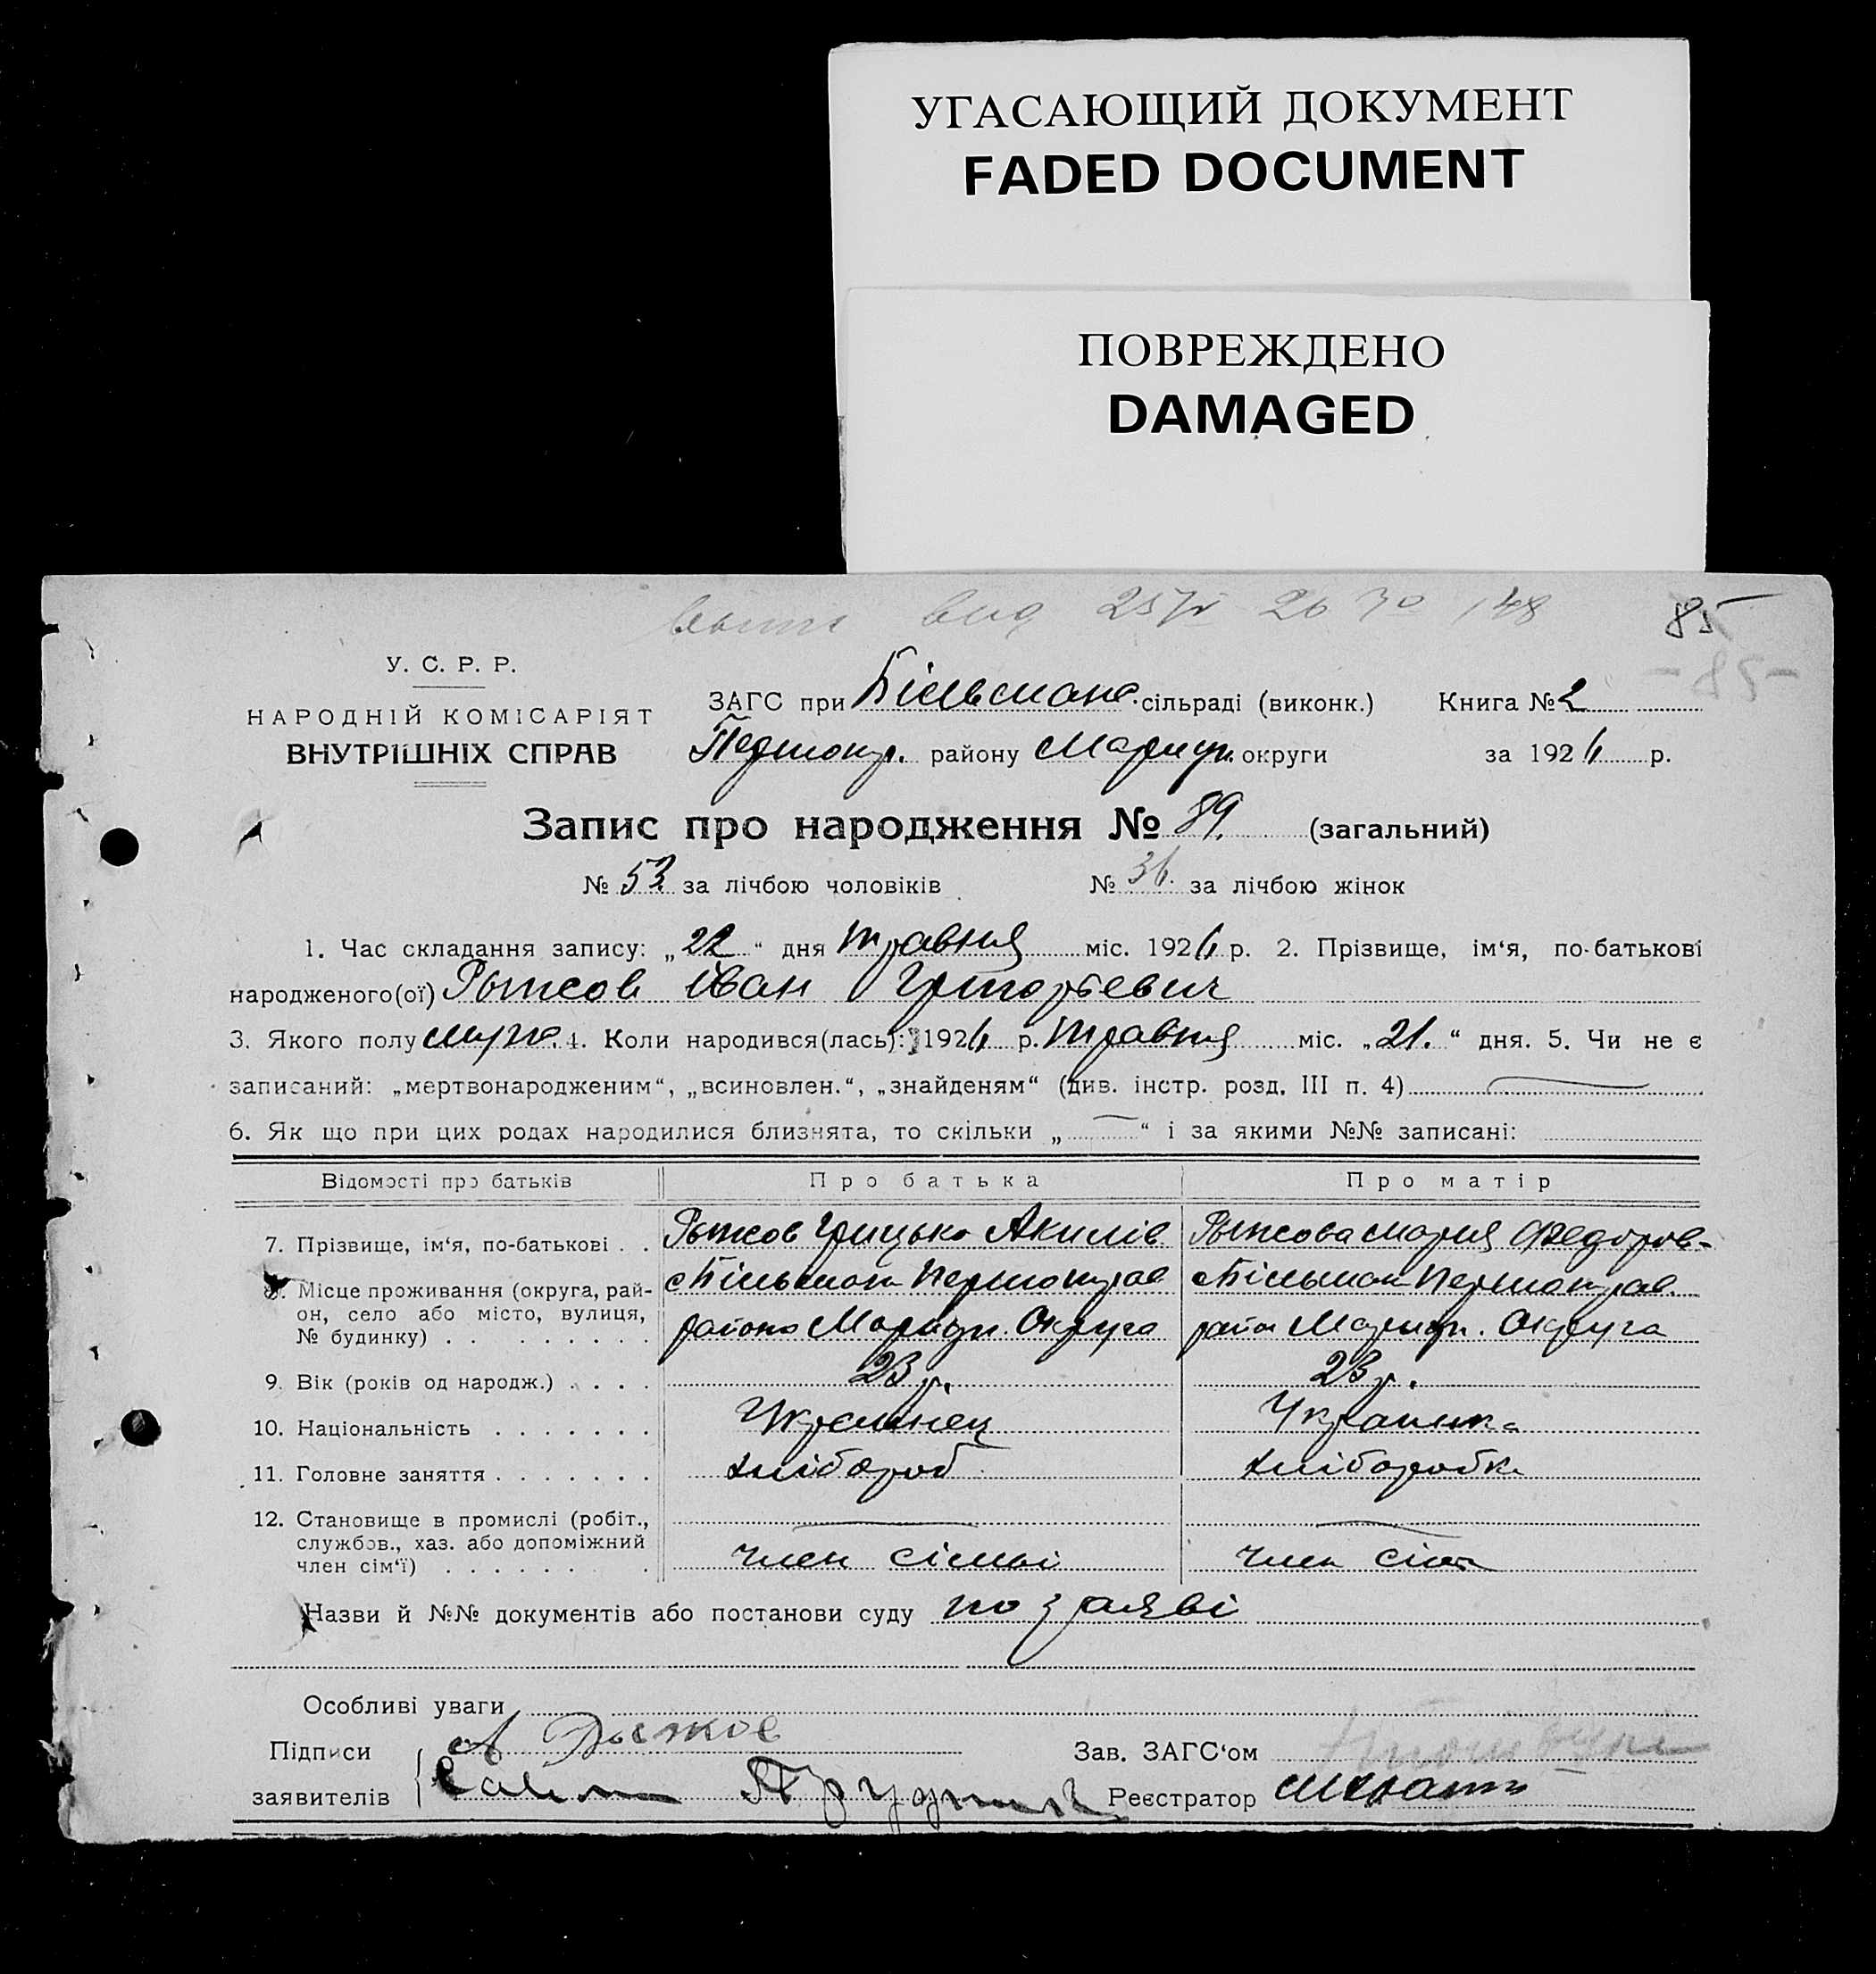 УГАСАЮЩИЙ ДОКУМЕНТ
FADED DOCUMENT
ПОВРЕЖДЕНО
DAMAGED
85
- 85 -
У. С. Р. Р.
НАРОДНІЙ КОМІСАРІЯТ
ВНУТРІШНІХ СПРАВ
ЗАГС при Більманс. сільраді (виконк.) Книга № 2
Першокр. району Маріуп. округи за 1926 р.
Запис про народження № 89. (загальний)
№ 53 за лічбою чоловіків № 36. за лічбою жінок
1. Час складання запису: „22“ дня травня міс. 1926 р. 2. Прізвище, ім‘я, по-батькові
народженого(ої) Рыжов Іван Григорьевич
3. Якого полу муж. 4. Коли народився(лась): 1926 р. травня міс. „21.“ дня. 5. Чи не є
записаний: „мертвонародженим“, „всиновлен.“, „знайденям“ (див. інстр. розд. III п. 4)
6. Як що при цих родах народилися близнята, то скільки „ “ і за якими №№ записані:
Відомості про батьків Про батька Про матір
7. Прізвище, ім‘я, по-батькові . . Рыжов Грицько Акилів Рыжова Мария Федоров-
8. Місце проживання (округа, рай- с Більман Першокрав с Більман Першокрав.
он, село або місто, вулиця,
№ будинку) . . района Маріуп. Округа район Маріуп. Округа
9. Вік (років од народж.) . . . . 23 р. 23 р.
10. Національність . . . . . . . Украинец Украинка
11. Головне заняття . . . . . . . хлібороб хлібаробка
12. Становище в промислі (робіт.,
службов., хаз. або допоміжний
член сім‘ї) . . . . . . . член сімьі член сім
Назви й №№ документів або постанови суду по заяві
Особливі уваги
Підписи А Рыжов Зав. ЗАГС‘ом
заявителів Реєстратор